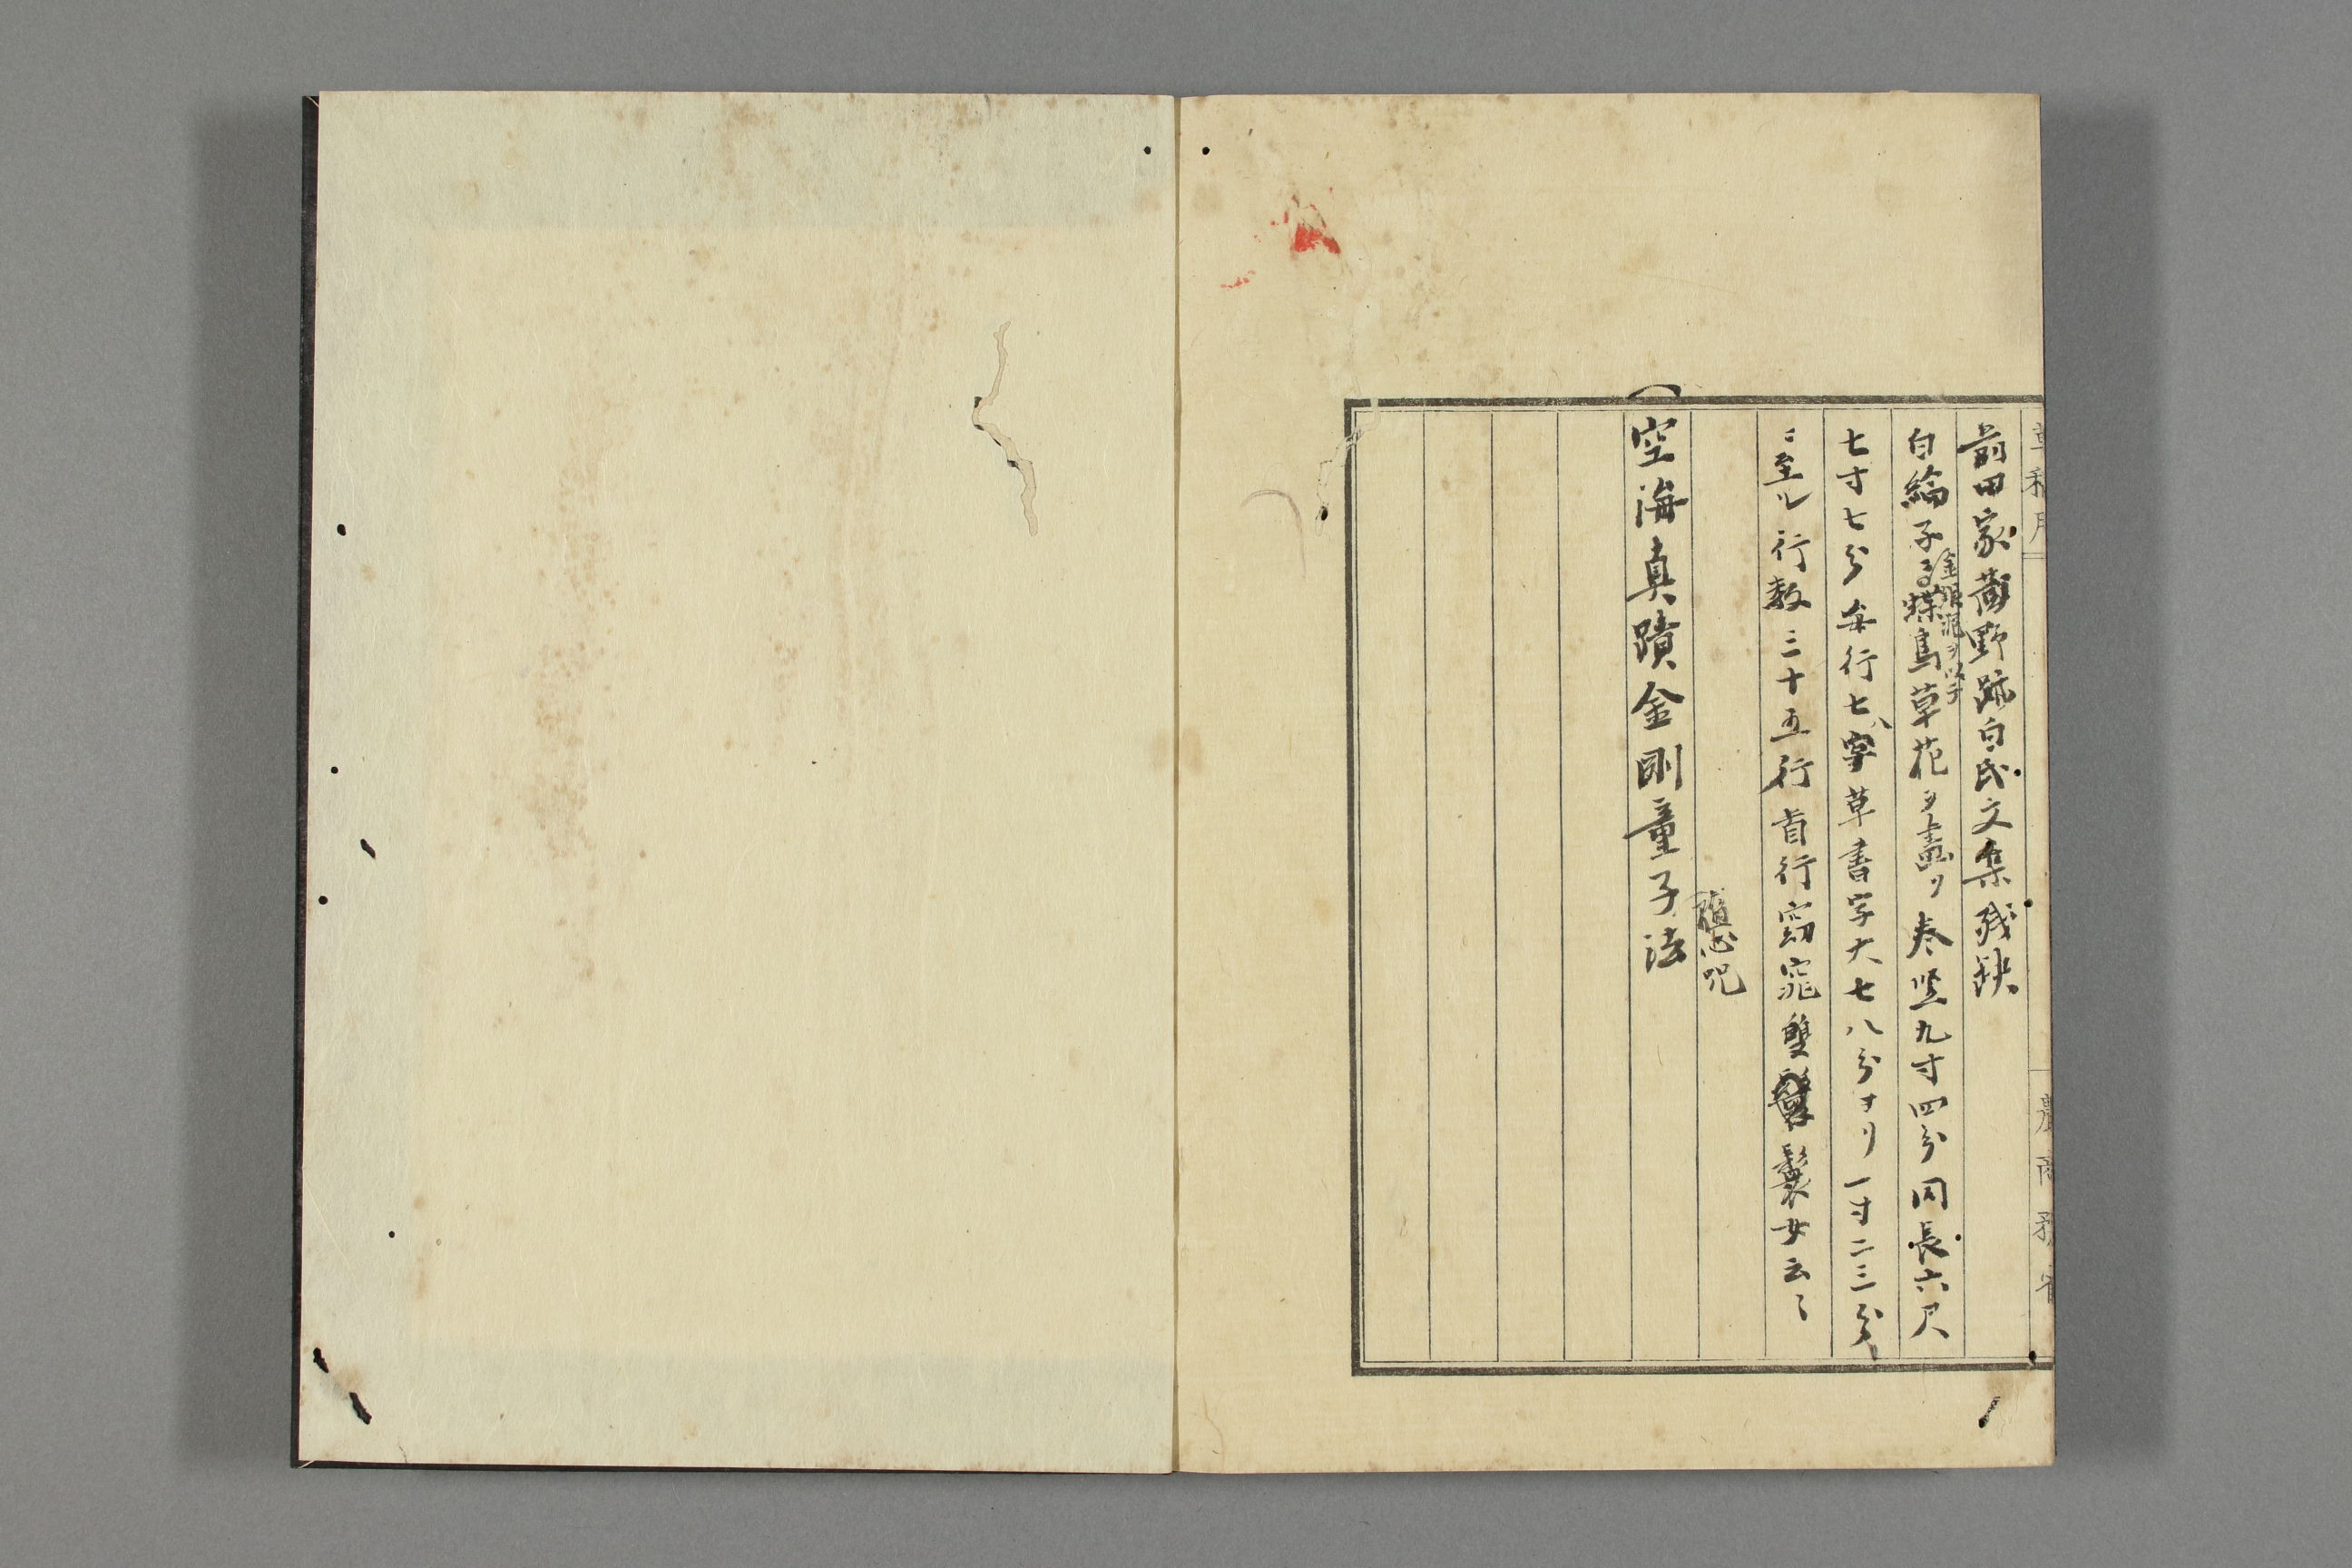 前田家蔵野跡白氏文集残缺
白綸子
金銀泥ヲ以テ
蝶鳥草花ヲ畵リ 巻竪九寸四分 同長六尺
七寸七分 毎行七八字 草書字大七八分ヨリ一寸二三分
ニ至ル 行数三十五行 首行窈窕雙鬟女云〻
心呪
空海真蹟金剛童子法
農商務省